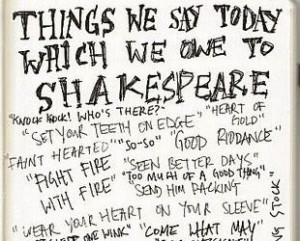 THINGS WE SAY TODAY
WHICH WE OWE TO
SHAKESPEARE
"KNOCK KNOCK! WHO'S THERE?"
"HEART OF GOLD"
"SET YOUR TEETH ON EDGE"
"FAINT HEARTED"
"SO-SO"
"GOOD RIDDANCE"
"FIGHT FIRE
WITH FIRE"
"SEEN BETTER DAYS"
"TOO MUCH OF A GOOD THING"
"SEND HIM PACKING"
"WEAR YOUR HEART ON YOUR SLEEVE"
ONE WINK"
"COME WHAT MAY
STOCK